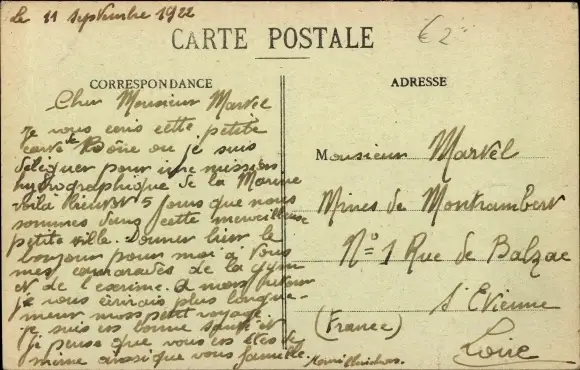 le 11 Septembre 1922
€ 2
CARTE POSTALE
CORRESPONDANCE
ADRESSE
Cher Monsieur Marvel
Je vous ecris cette petite
carte de Bône ou je suis
déléguer pour une mission
hydrographique de la Marine
voila bientot 5 jours que nous
sommes dans cette merveilleuse
petite ville. Donner bien le
bonjour pour moi a Vous
mes camarades de la Gym
et de l'escrime. a mon retour
je vous écrirais plus longue-
ment mon petit voyage
je suis en bonne santé et
j'e pense que vous en êtes de
même ainsi que vous famille.
Monsieur Marvel
Mines de Montrambert
N° 1 Rue de Balzac
St Etienne
(France)
Loire